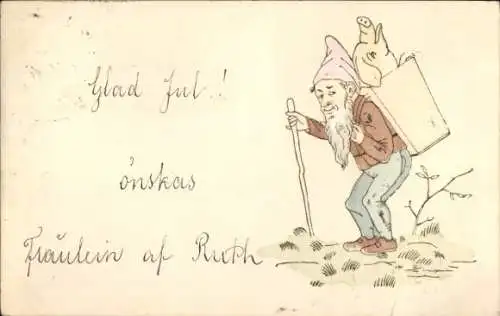 Glad Jul!
önskas
Fräulein af Ruth